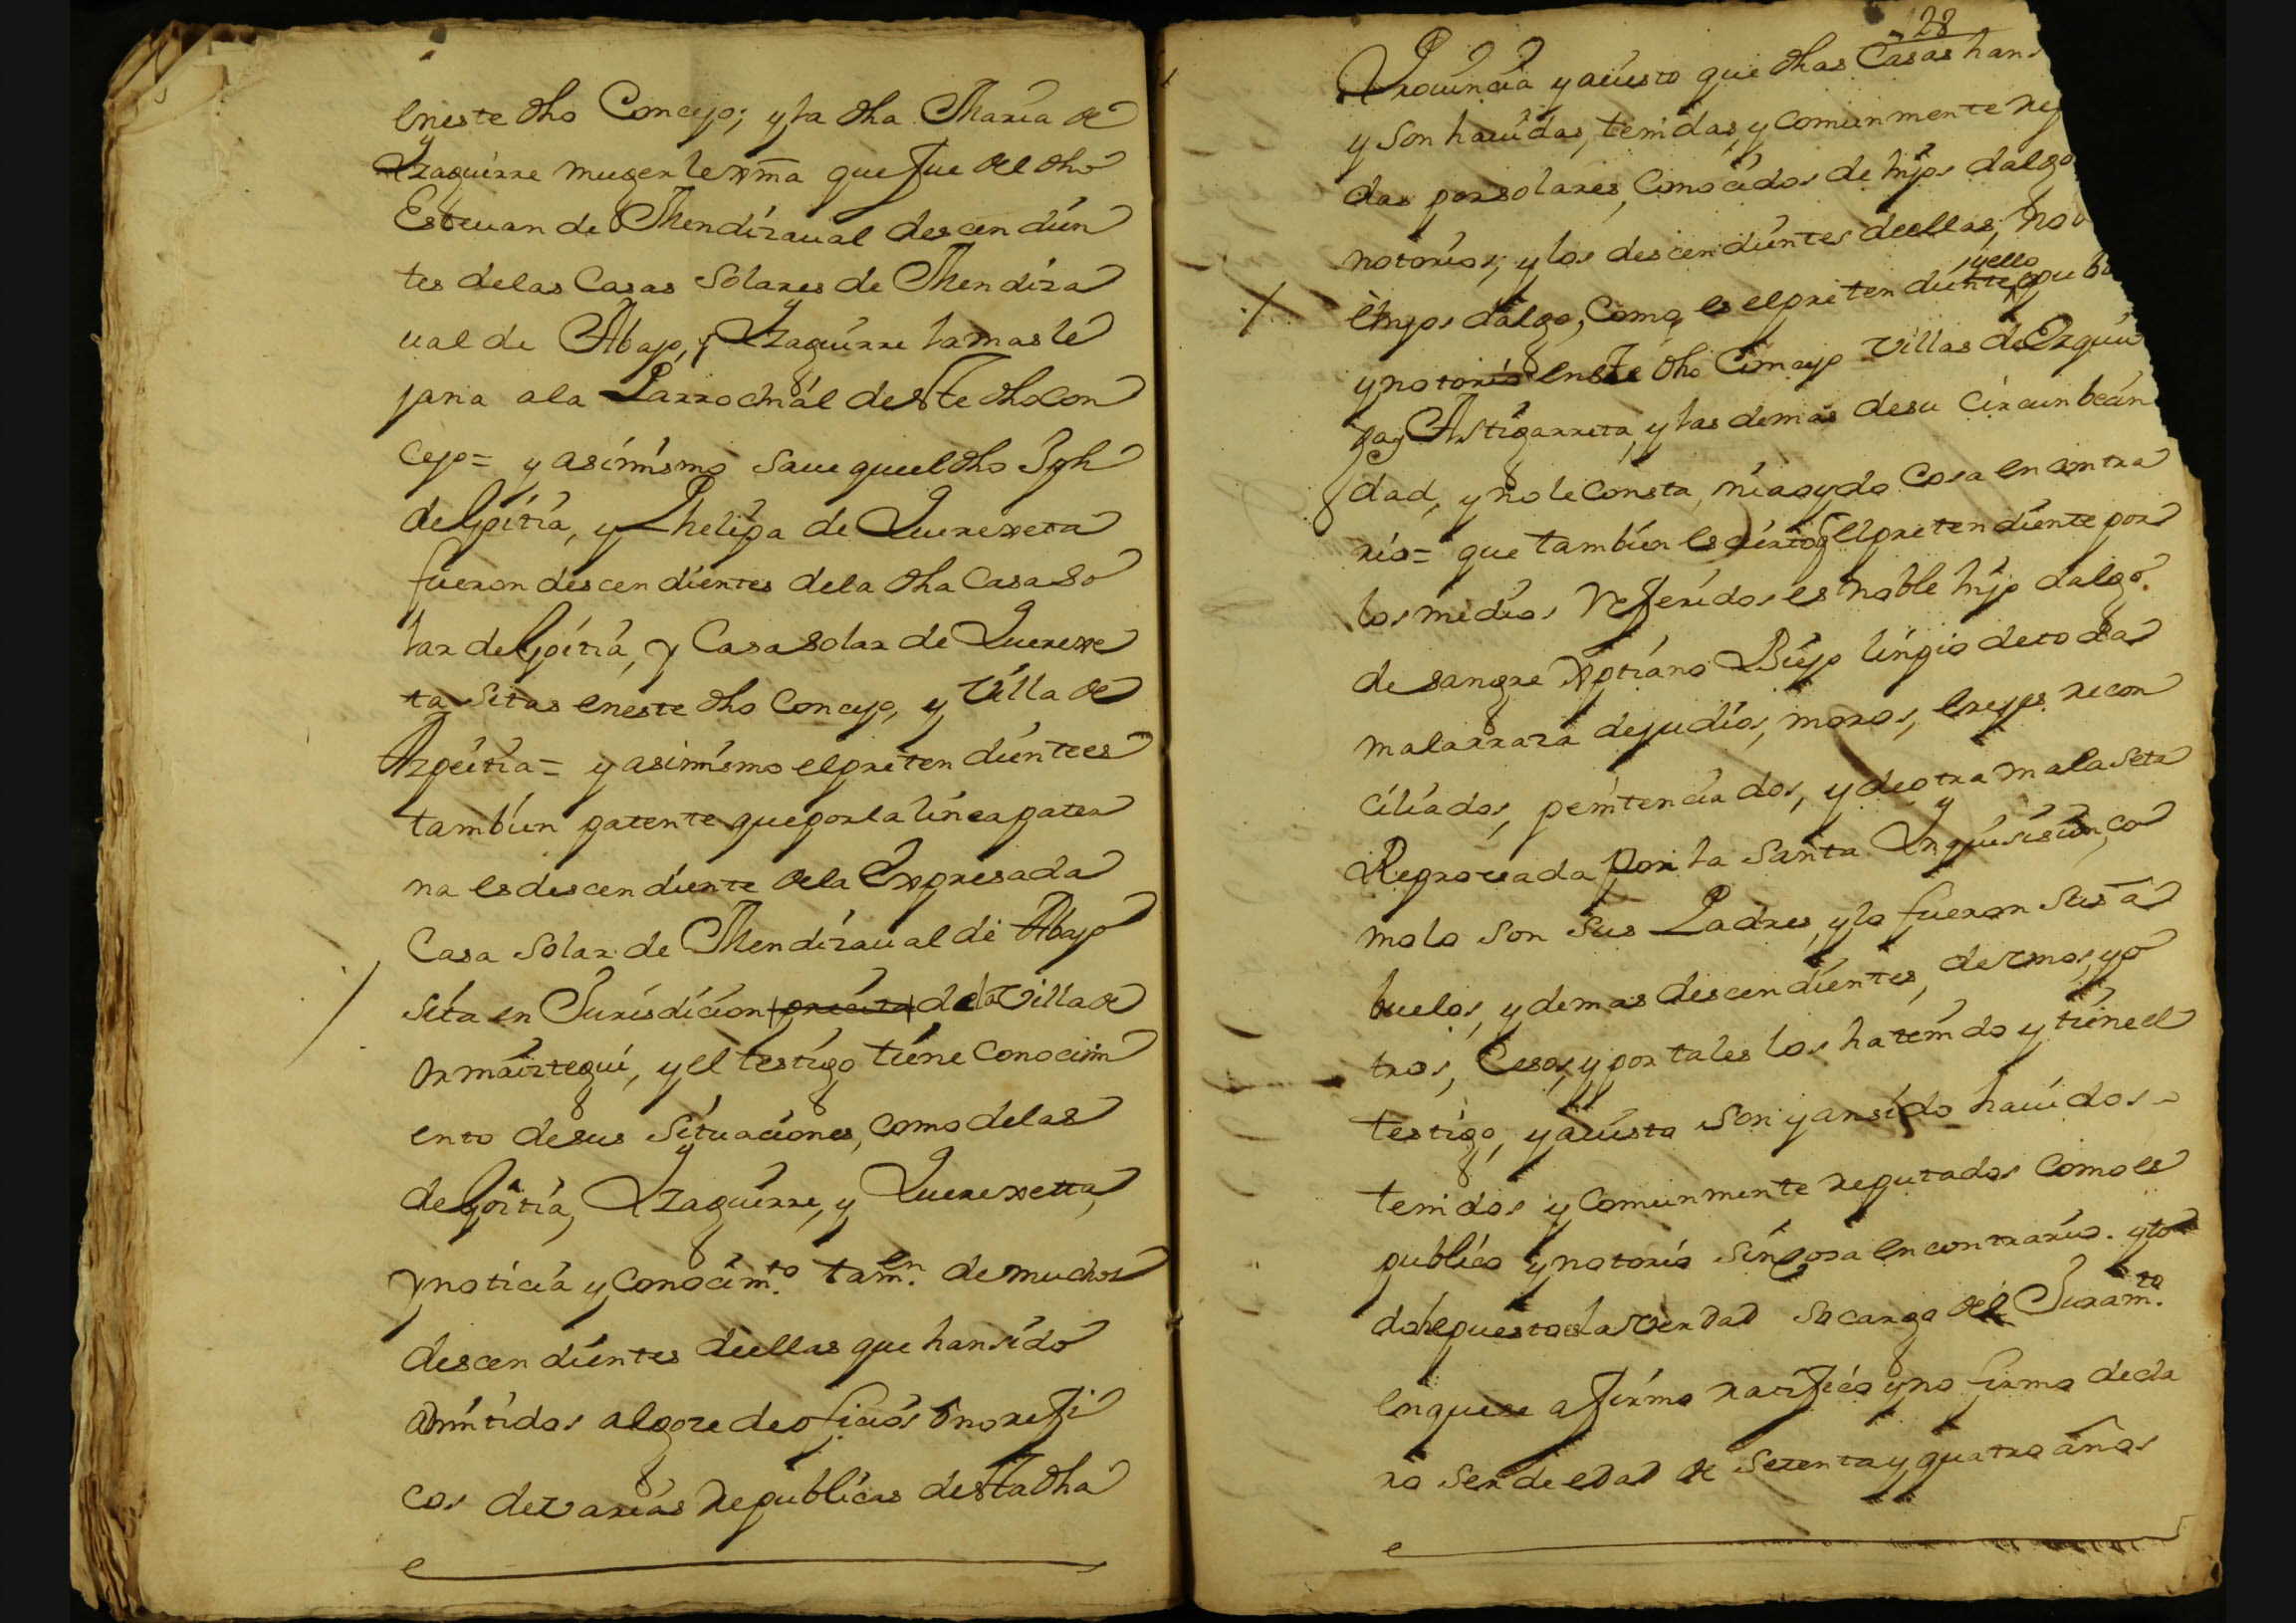 eneste dho Concejo; y la dha Maria de
Yzaguirre muger lexma que fue del dho
Esteuan de Mendizaual descendien
tes delas Casas Solares de Mendiza
ual de Abajo, y Yzaguirre la mas le
jana ala Parrochial deste dho Con
cejo = y asimismo saue quel dho Jph
de Goitia, y Phelipa de Querexeta
fueron descendientes dela dha Casa So
lar de Goitia, y Casa Solar de Querexe
ta Sitas eneste dho Concejo, y Villa de
Azpeitia = y asimismo el pretendiente es
tambien patente que por la linea pater
na es descendiente dela Expresada
Casa Solar de Mendizaual de Abajo
sita en Jurisdicion dela Villa de
Ormaiztegui, y el testigo tiene Conocim
ento de sus Situaciones, como delas
de Goitia, Yzaguirre, y Querexetta,
y noticia y Conocimto. tamen. de muchos
descendientes deellas que han sido
admitidos al goze de oficios onorefi
cos de varias Republicas desta dha
128
Prouincia y a visto que dhas Casas han
y son hauidas, tenidas, y comunmente rep
das por solares, Conocidos de hijos dalgo
notorios; y los descendientes deellas, no
e hijos dalgo, Como es el pretendiente, yello
y notorio eneste dho Concejo Villas de Ezquio
ga y Astigarreta, y las demas desu Circunbecin
dad, y no le Consta, ni a oydo Cosa en contra
rio = que tambien es cierto q el pretendiente por
los medios Referidos es noble hijo dalgo
de sangre Xptiano Biejo limpio de toda
mala rraza de judios, moros, erejes recon
ciliados, penitenciados, y de otra mala Seta
Reprovada por la Santa Ynquisision, co
molo son Sus Padres, y lo fueron Sus a
buelos, y demas descendientes, de xmos, y o
tros, Cesos, y por tales los ha tenido y tiene el
testigo, y a visto Son y an sido hauidos
tenidos y Comunmente reputados Como es
publico y notorio sin Cosa en contrario. y to
do depuesto es la verdad so cargo del Juramto.
en que se afirmo ratifico y no firmo decla
ro Ser de edad de Setenta y quatro años